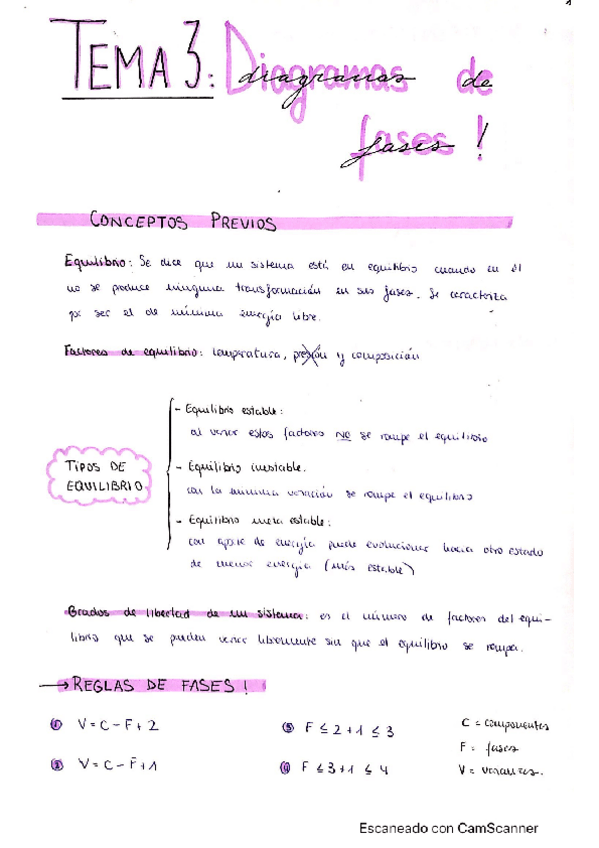 TEMA 3: Diagramas de
diagramas de
fases!
CONCEPTOS PREVIOS
Equilibrio: Se dice que un sistema está en equilibrio cuando en él
no se produce ninguna transformación en sus fases. Se caracteriza
por ser el de mínima energía libre.
Factores de equilibrio: temperatura, presión y composición
- Equilibrio estable:
al variar estos factores NO se rompe el equilibrio
TIPOS DE
EQUILIBRIO
- Equilibrio inestable.
con la mínima variación se rompe el equilibrio
- Equilibrio meta estable:
con aporte de energía puede evolucionar hacia otro estado
de menor energía (más estable)
Grados de libertad de un sistema: es el número de factores del equi-
librio que se pueden variar libremente sin que el equilibrio se rompa.
→ REGLAS DE FASES!
① V = C - F + 2
③ F ≤ 2 + 1 ≤ 3
C = componentes
F = fases
② V = C - F + 1
④ F ≤ 3 + 1 ≤ 4
V = variantes.
Escaneado con CamScanner